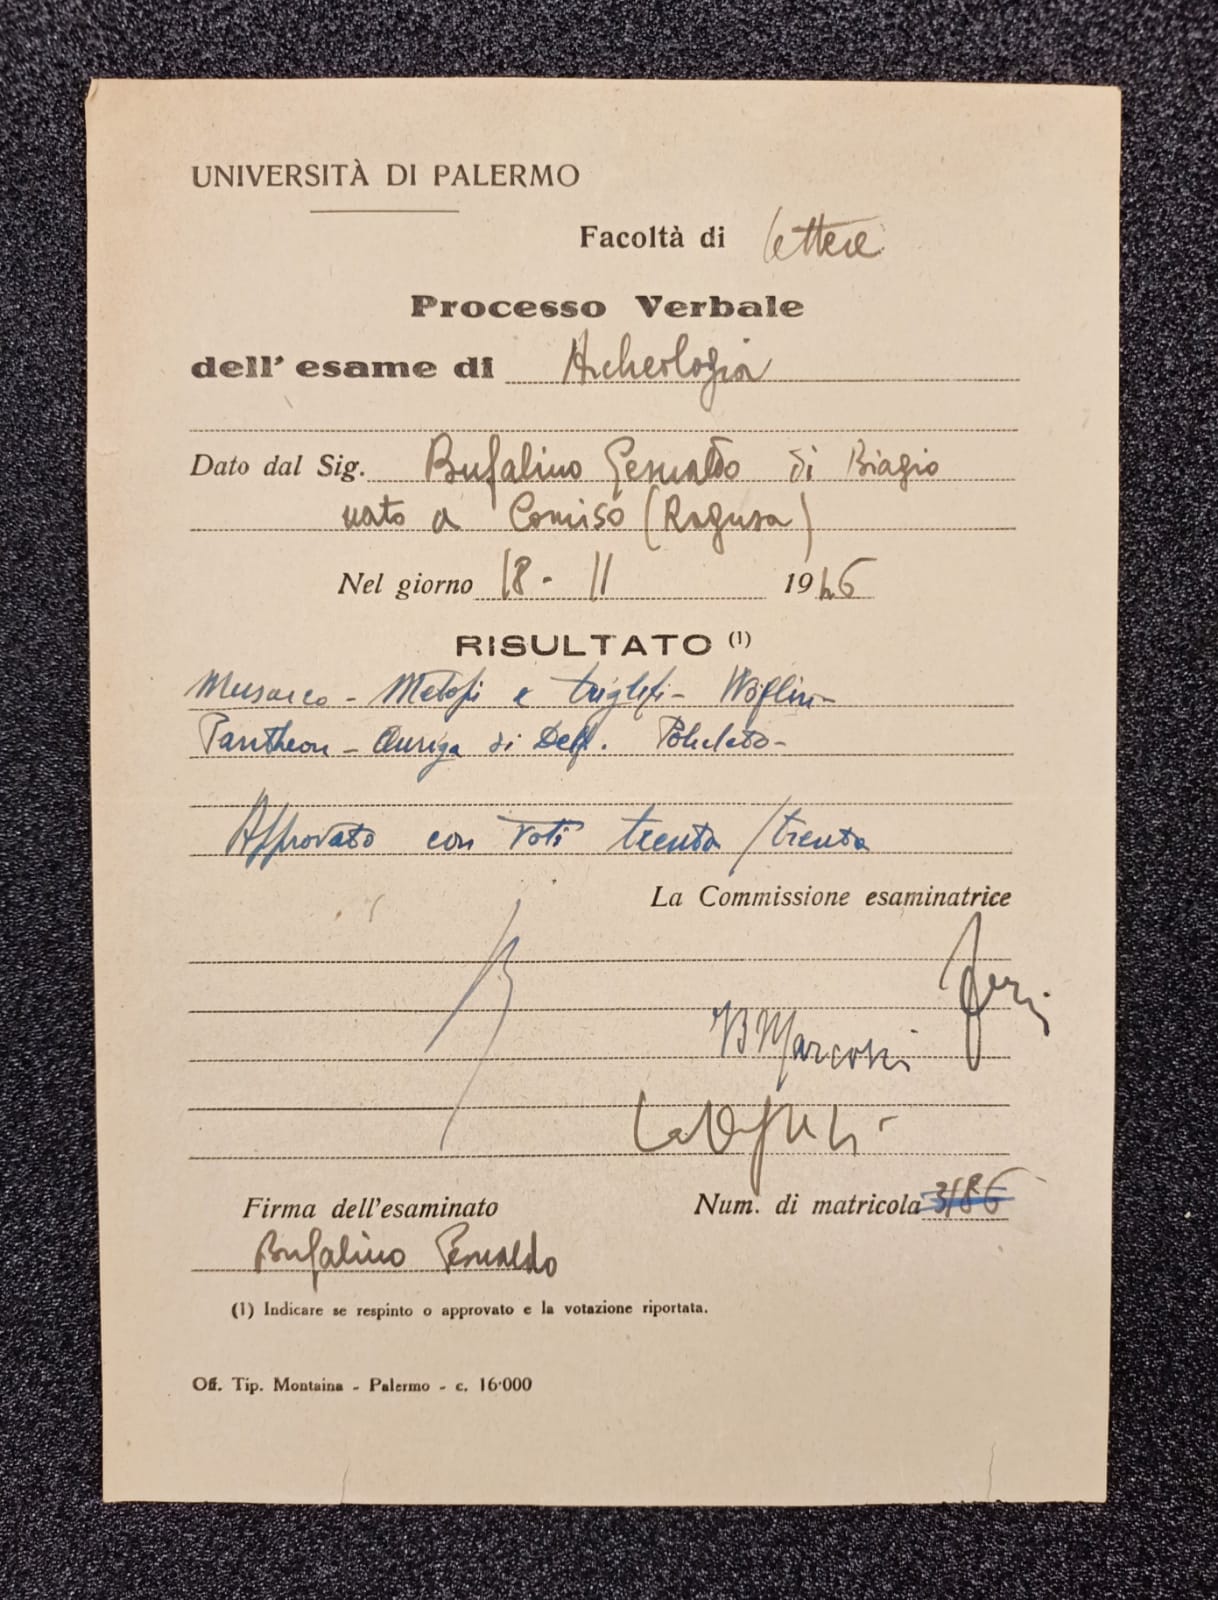 UNIVERSITÀ DI PALERMO
Facoltà di lettere
Processo Verbale
dell' esame di Archeologia
Dato dal Sig. Bufalino Gesualdo di Biagio
nato a Comiso (Ragusa)
Nel giorno 18 - 11 1946
RISULTATO (1)
Musaico - Metopi e triglifi - Wöflin -
Pantheon - Auriga di Delf. Policleto -
Approvato con voti trenta / trenta
La Commissione esaminatrice
Marconi
Firma dell'esaminato
Num. di matricola 3186
Bufalino Gesualdo
(1) Indicare se respinto o approvato e la votazione riportata.
Off. Tip. Montaina - Palermo - c. 16·000